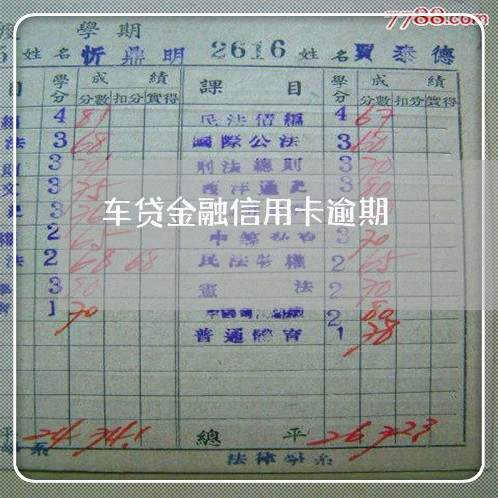 7788.com
學期
姓名 忻鼎明 2616 姓名 賈泰德
目 學分 成績 課目 學分 成績
分數 扣分 實得 分數 扣分 實得
4 81 民法債編 4 67
法 3 68 國際公法 3 60
3 刑法總則 3 70
3 75 西洋通史 3 80
車贷金融信用卡逾期
2 65 3 70
法 2 68 68 民法物權 2 65
3 80 憲法 2 70
1 70 2 80
普通體育 1 78
平 24 74.1 總平 26 72.3
系 法律學系